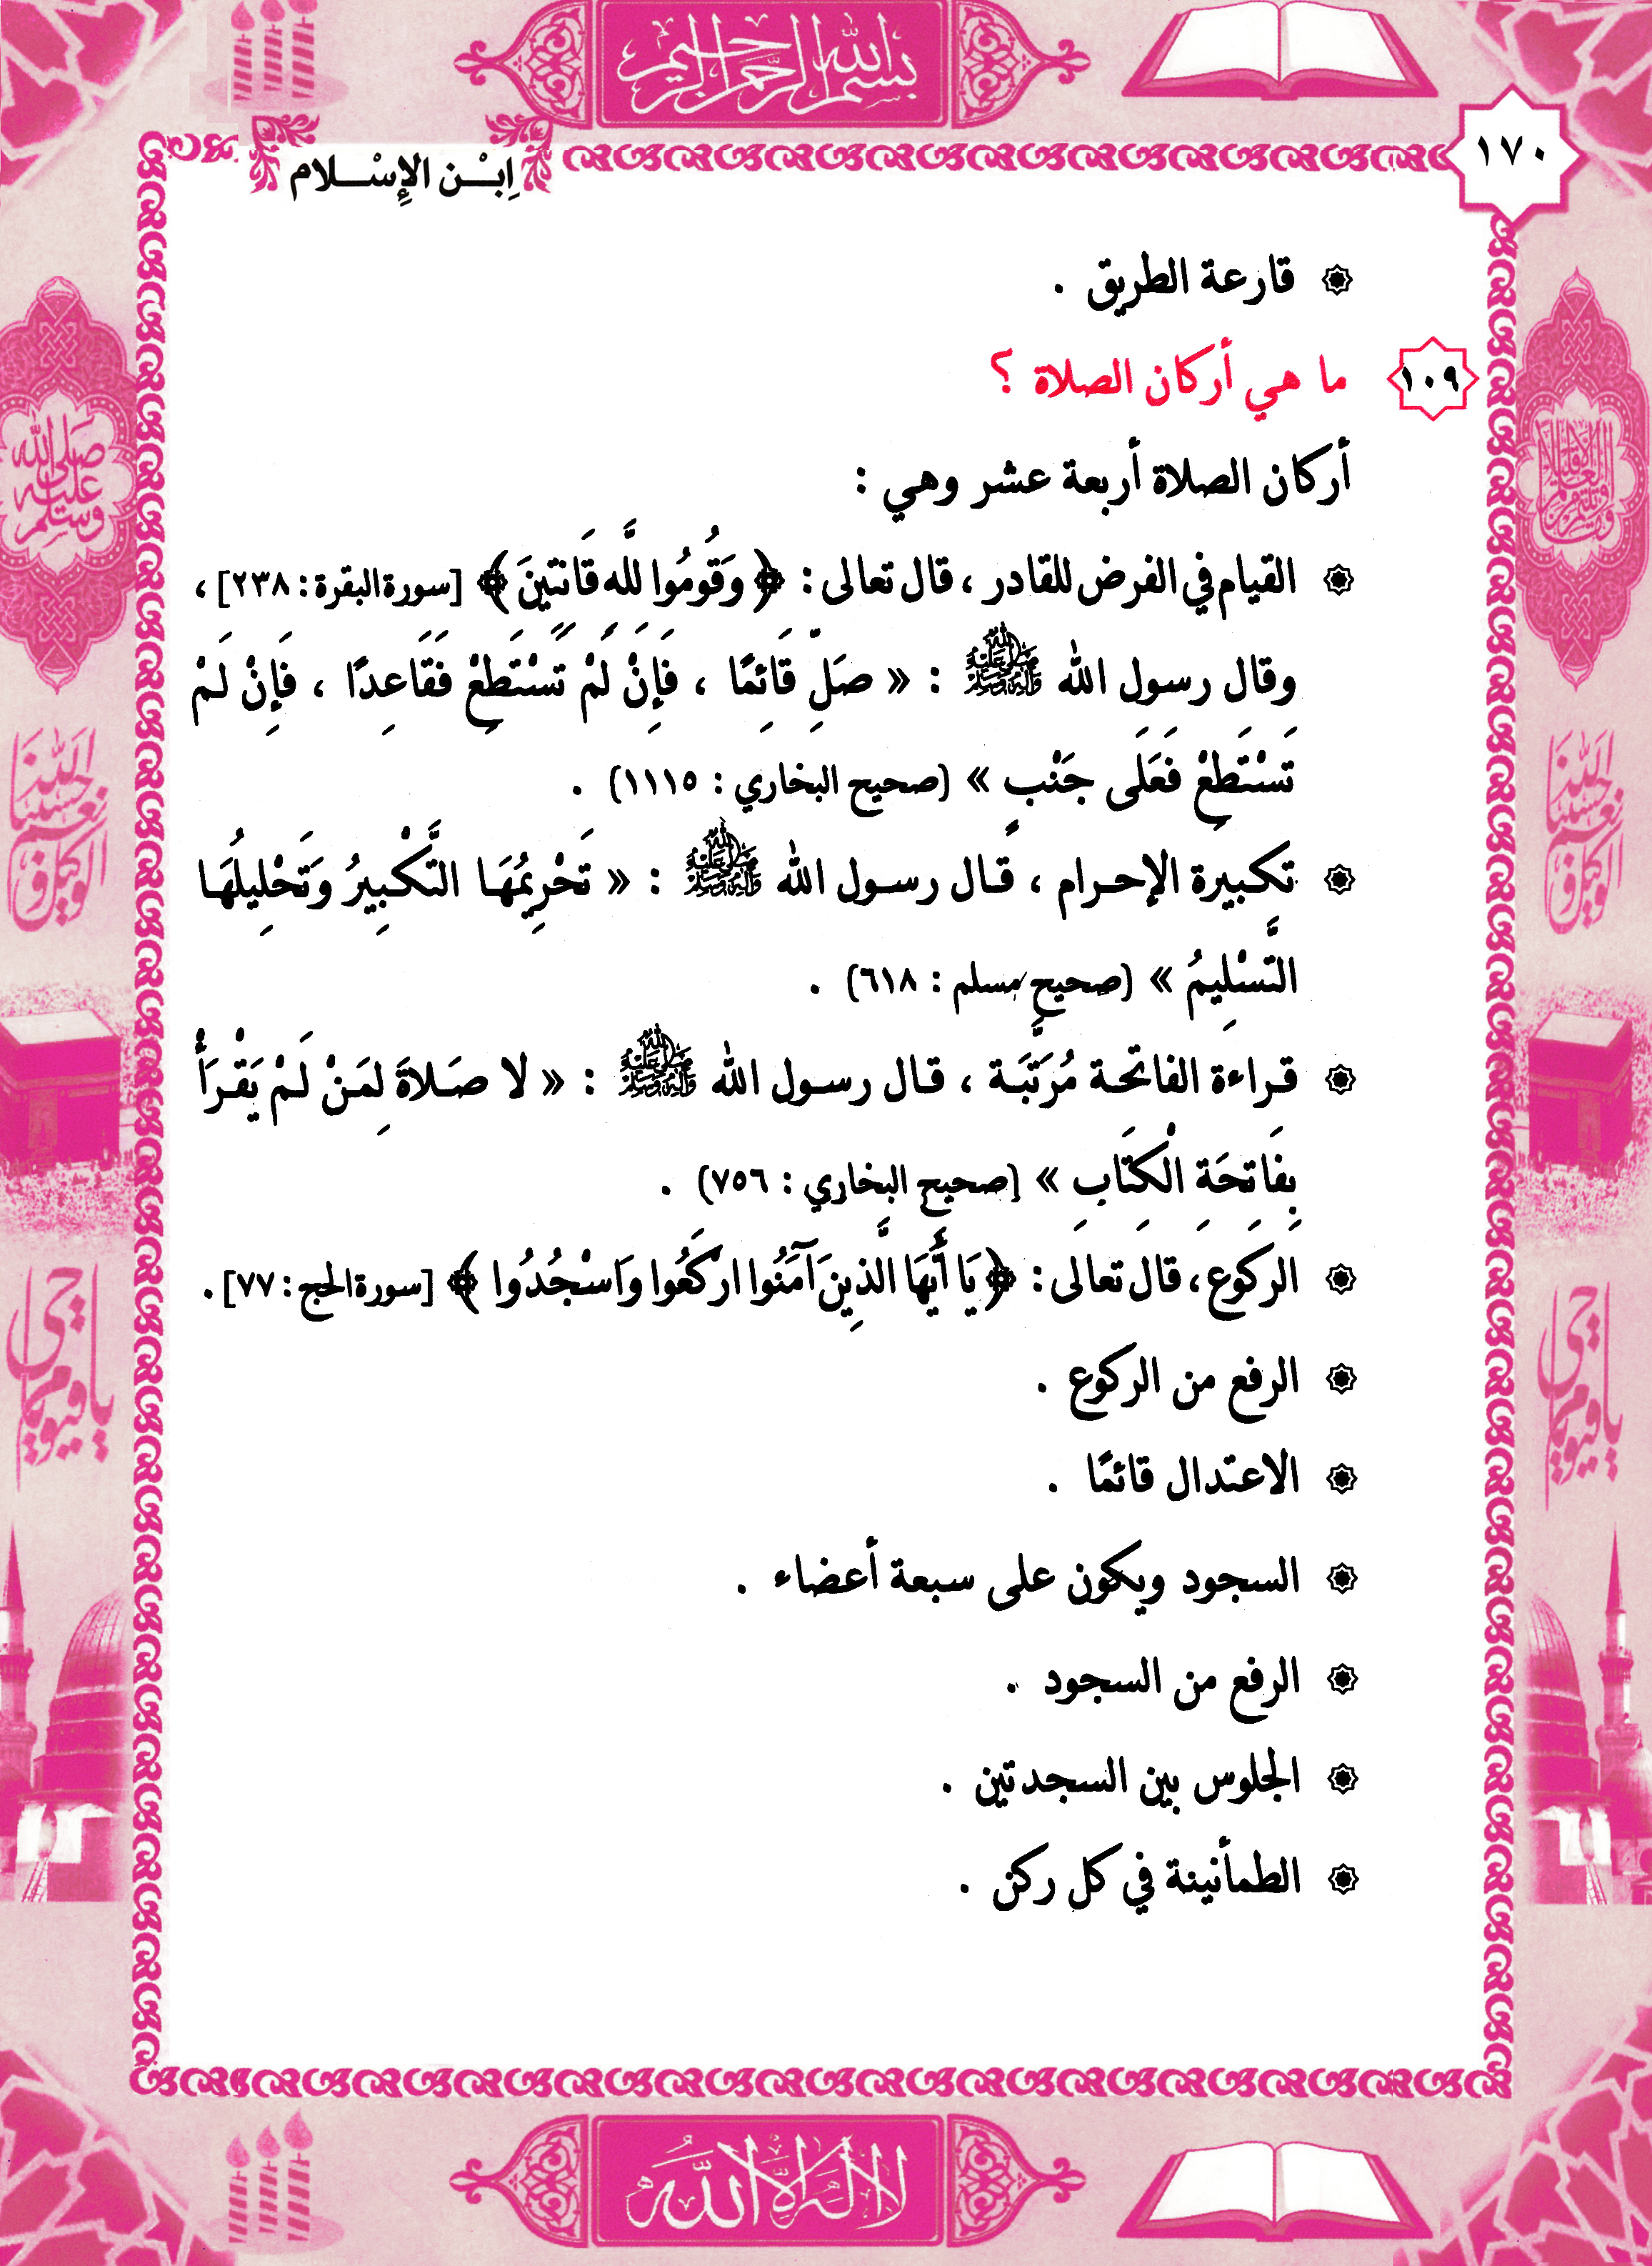 بسم الله الرحمن الرحيم
١٧٠
اِبْـــن الإِسْـــلام
قارعة الطريق .
١٠٩ ما هي أركان الصلاة ؟
أركان الصلاة أربعة عشر وهي :
القيام في الفرض للقادر ، قال تعالى : ﴿ وَقُومُوا للَّهِ قَانتينَ ﴾ [سورة البقرة : ٢٣٨] ،
وقال رسول الله ﷺ : « صَلِّ قَائِمًا ، فَإِنْ لَمْ تَسْتَطِعْ فَقَاعِدًا ، فَإِنْ لَمْ
تَسْتَطِعْ فَعَلَى جَنْبٍ » (صحيح البخاري : ١١١٥) .
تكبيرة الإحرام ، قال رسول الله ﷺ : « تَحْرِيمُهَا التَّكْبِيرُ وَتَحْلِيلُهَا
التَّسْلِيمُ » (صحيح مسلم : ٦١٨) .
قراءة الفاتحة مُرَتَّبَة ، قال رسول الله ﷺ : « لا صَلاةَ لِمَنْ لَمْ يَقْرَأْ
بِفَاتِحَةِ الْكِتَابِ » (صحيح البخاري : ٧٥٦) .
الركوع ، قال تعالى : ﴿ يَا أَيُّهَا الَّذِينَ آمَنُوا ارْكَعُوا وَاسْجُدُوا ﴾ [سورة الحج : ٧٧] .
الرفع من الركوع .
الاعتدال قائمًا .
السجود ويكون على سبعة أعضاء .
الرفع من السجود .
الجلوس بين السجدتين .
الطمأنينة في كل ركن .
صلى الله عليه وسلم
حسبنا الله ونعم الوكيل
يا حي يا قيوم
حسبنا الله ونعم الوكيل
يا حي يا قيوم
لا إله إلا الله